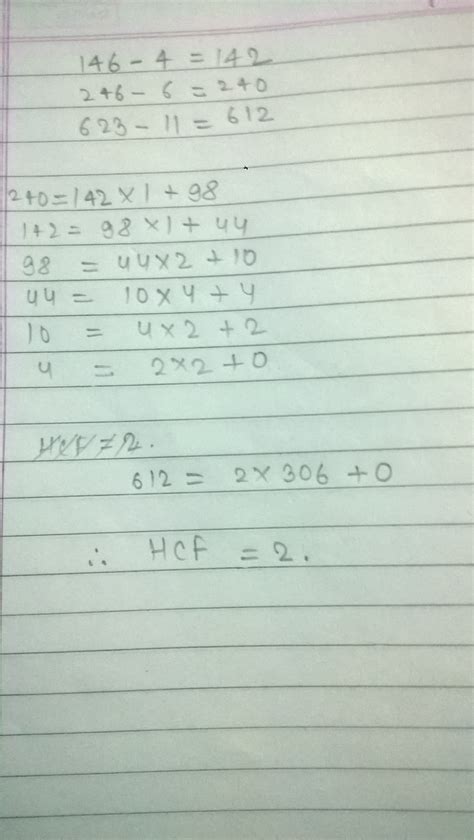 146 - 4 = 142
246 - 6 = 240
623 - 11 = 612
240 = 142 × 1 + 98
142 = 98 × 1 + 44
98 = 44 × 2 + 10
44 = 10 × 4 + 4
10 = 4 × 2 + 2
4 = 2 × 2 + 0
HCF = 2.
612 = 2 × 306 + 0
∴ HCF = 2.